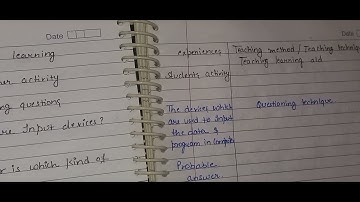 Date
learning
activity
questions
Input devices?
is which kind of
Date
experiences
Teaching method / Teaching technique
Teaching learning aid
students activity
The devices which
are used to input
the data &
program in
Questioning technique
Probable
answer